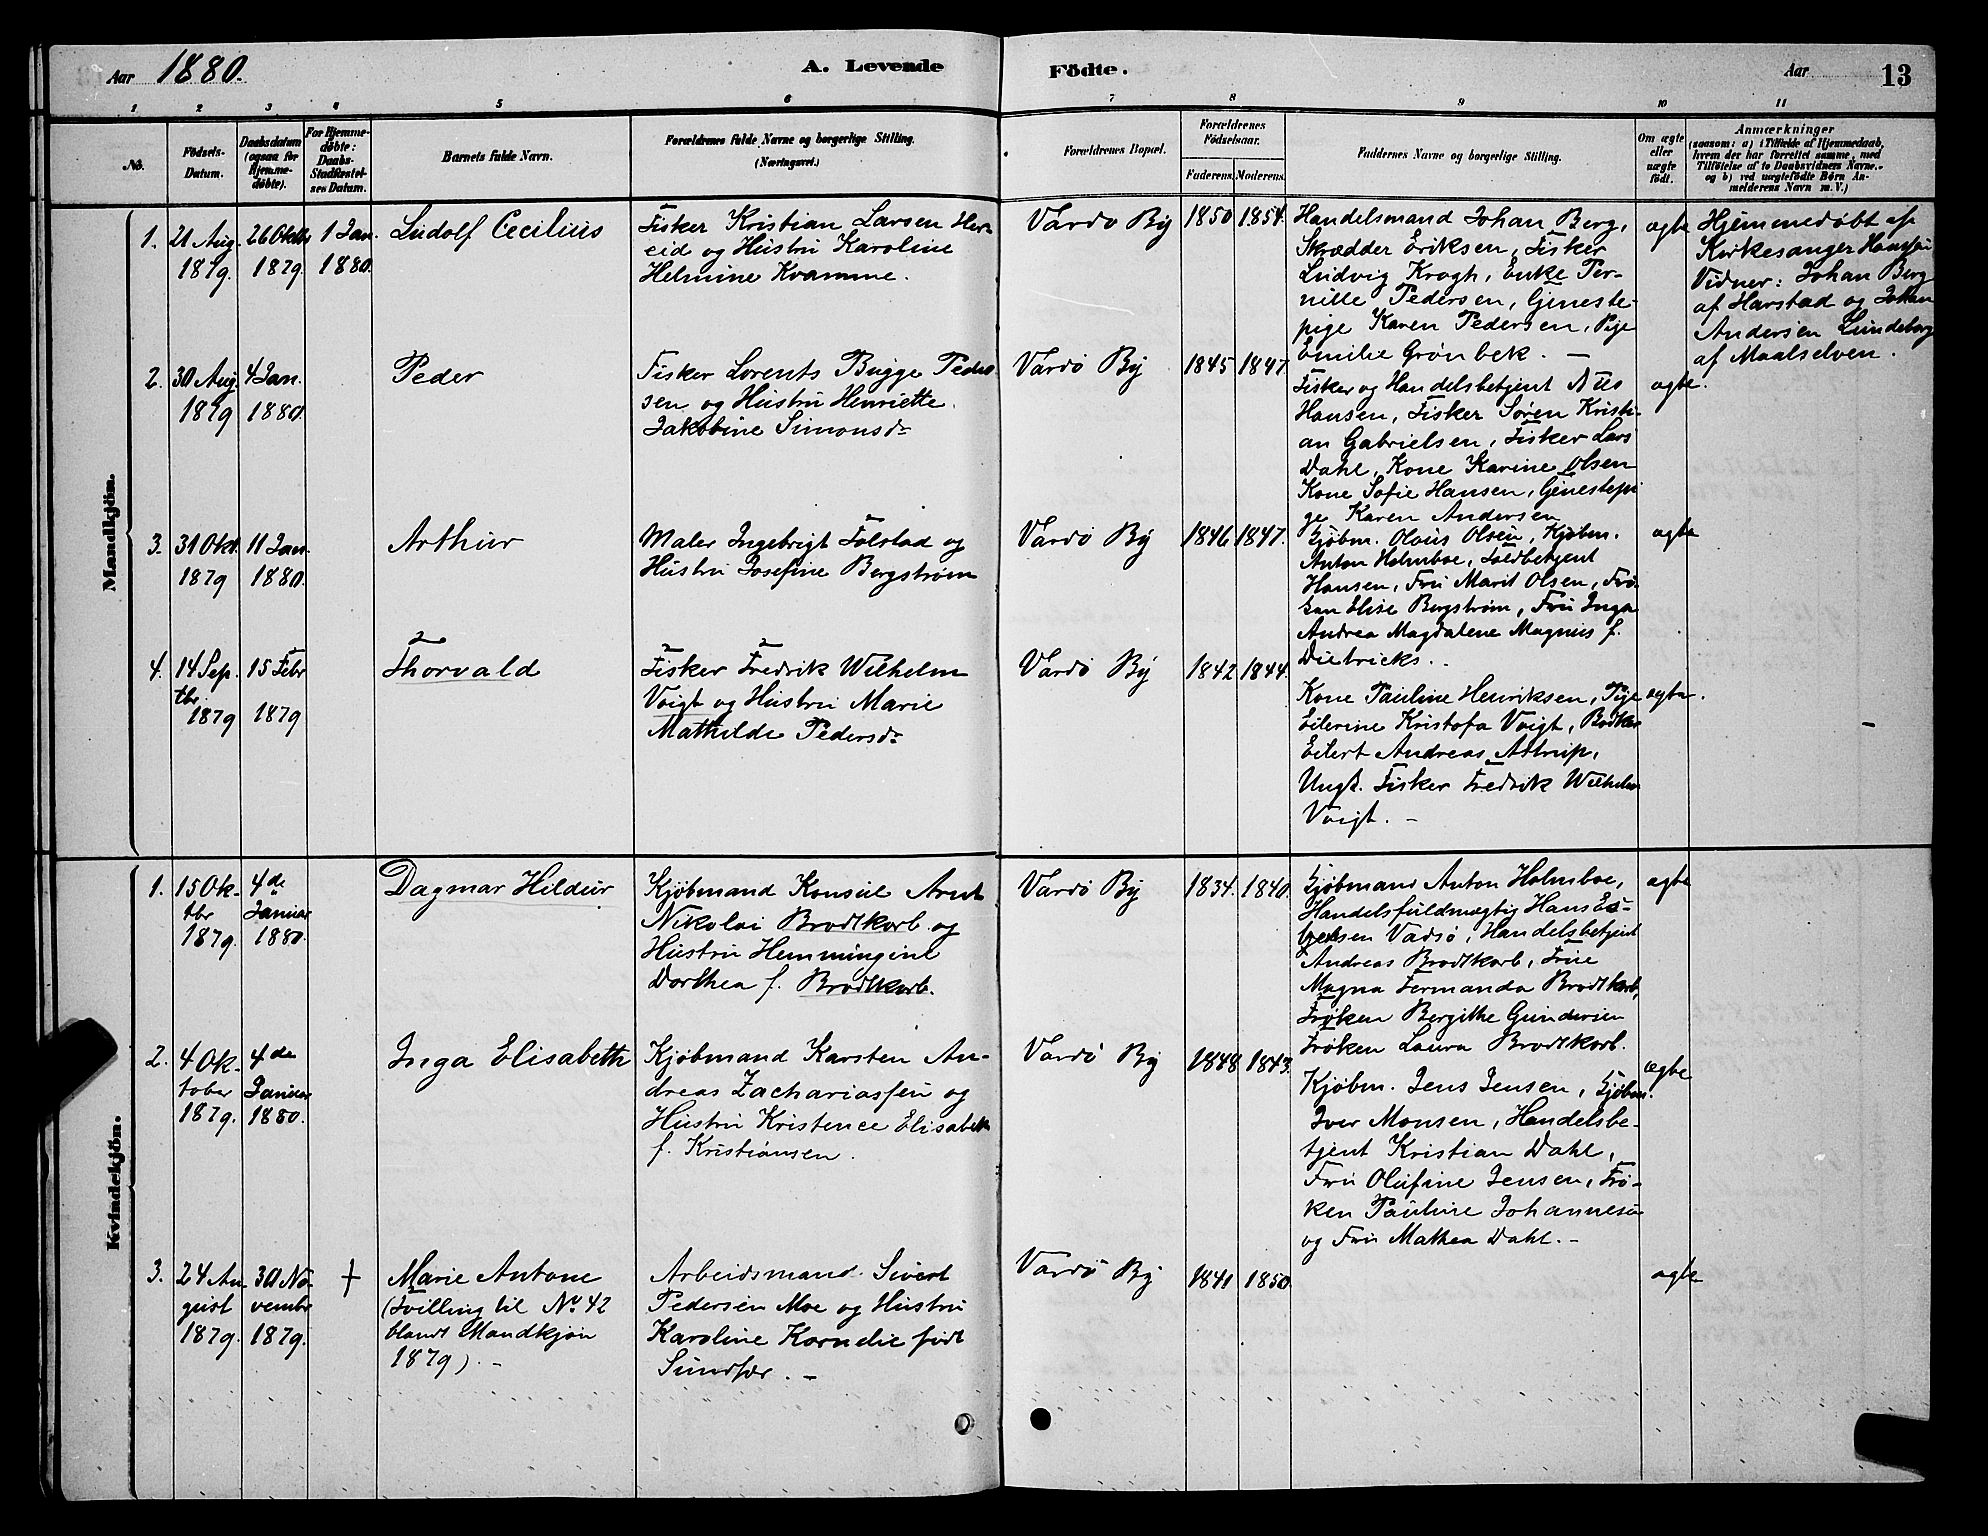 Aar 1880.
A. Levende
Födte.
Aar
13
1 2 3 4 5 6 7 8 9 10 11
No.
Födsels-
Datum.
Daabsdatum
(ogsaa for
Hjemme-
döbte).
For Hjemme-
döbte:
Daabs-
Stadfæstel-
ses Datum.
Barnets fulde Navn.
Forældrenes fulde Navne og borgerlige Stilling.
(Næringsvei.)
Forældrenes Bopæl.
Forældrenes
Födselsaar.
Faderens.
Moderens.
Faddernes Navne og borgerlige Stilling.
Om ægte
eller
uægte
födt.
Anmærkninger
(saasom: a) i Tilfælde af Hjemmedaab,
hvem der har forrettet samme, med
Tilföielse af to Daabsvidners Navne,
og b) ved uægtefödte Börn An-
melderens Navn m. V.)
Mandkjön.
1.
21 Aug.
1879.
26 Oktbr
1879.
1 Jan.
1880.
Ludolf Cecilius
Fisker Kristian Larsen Her-
eid og Hustru Karoline
Helmine Kvamme.
Vardø By
1850
1854.
Handelsmand Johan Berg,
Skrædder Eriksen, Fisker
Ludvig Krogh, Enke Per-
nille Pedersen, Tjeneste-
pige Karen Pedersen, Pige
Emilie Grønbek. —
ægte
Hjemmedøbt af
Kirkesanger
Vidner: Johan Berg
af Harstad og Johan
Andersen Lundeborg
af Maalselven.
2.
30 Aug
1879
4 Jan.
1880.
Peder
Fisker Lorents Bugge Peder
sen og Hustru Henriette
Jakobine Simonsdr
Vardö By
1845
1847
Fisker og Handelsbetjent Nils
Hansen, Fisker Søren Kristi-
an Gabrielsen, Fisker Lars
Dahl, Kone Karine Olsen
Kone Sofie Hansen, Tjenestepi
ge Karen Andersen
ægte.
3.
31 Okt.
1879
11 Jan.
1880.
Arthur
Maler Ingebrigt Folstad og
Hustru Josefine Bergstrøm
Vardö By
1846
1847.
Kjøbm. Olaus Olsen, Kjøbm.
Anton Holmboe, Toldbetjent
Hansen, Fru Marit Olsen, Frø-
ken Elise Bergstrøm, Fru Inga
Andrea Magdalene Magnus f.
Dietricks..
ægte
4.
14 Sep.
tbr
1879
15 Febr
1879
Thorvald
Fisker Fredrik Wilhelm
Voigt og Hustru Marie
Mathilde Pedersdr
Vardö By
1842
1844.
Kone Pauline Henriksen, Pige
Eilerine Kristofa Voigt, Bødker
Eilert Andreas Attrup,
Ungk. Fisker Fredrik Wilhelm
Voigt. —
ægte.
Kvindekjön.
1.
15 Ok-
tbr
1879.
4de
Januar
1880.
Dagmar Hildur
Kjøbmand Konsul Arnt
Nikolai Brodtkorb og
Hustru Hemmingine
Dorthea f. Brodtkorb.
Vardö By
1834.
1840.
Kjøbmand Anton Holmboe,
Handelsfuldmægtig Hans Es-
bensen Vadsø, Handelsbetjent
Andreas Brodtkorb, Frue
Magna Fermanda Brodtkorb,
Frøken Bergithe Gundersen
Frøken Laura Brodtkorb.
ægte
2.
4 Ok-
tober
1879.
4de
Januar
1880.
Inga Elisabeth
Kjøbmand Karsten An-
dreas Zachariassen og
Hustru Kristence Elisabeth
f. Kristiansen.
Vardö By
1848
1843.
Kjøbm. Jens Jensen, Kjøbm.
Iver Monsen, Handelsbe-
tjent Kristian Dahl,
Fru Olufine Jensen, Frø-
ken Pauline Johannesen
og Fru Mathea Dahl. —
ægte
3.
24 Au-
gust
1879.
30 No-
vembr
1879.
+
Marie Antone
(Tvilling til No. 42
blandt Mandkjøn
1879). —
Arbeidsmand Sivert
Pedersen Moe og Hustru
Karoline Kornelie født
Sundfær. —
Vardö By
1841
1850.
ægte